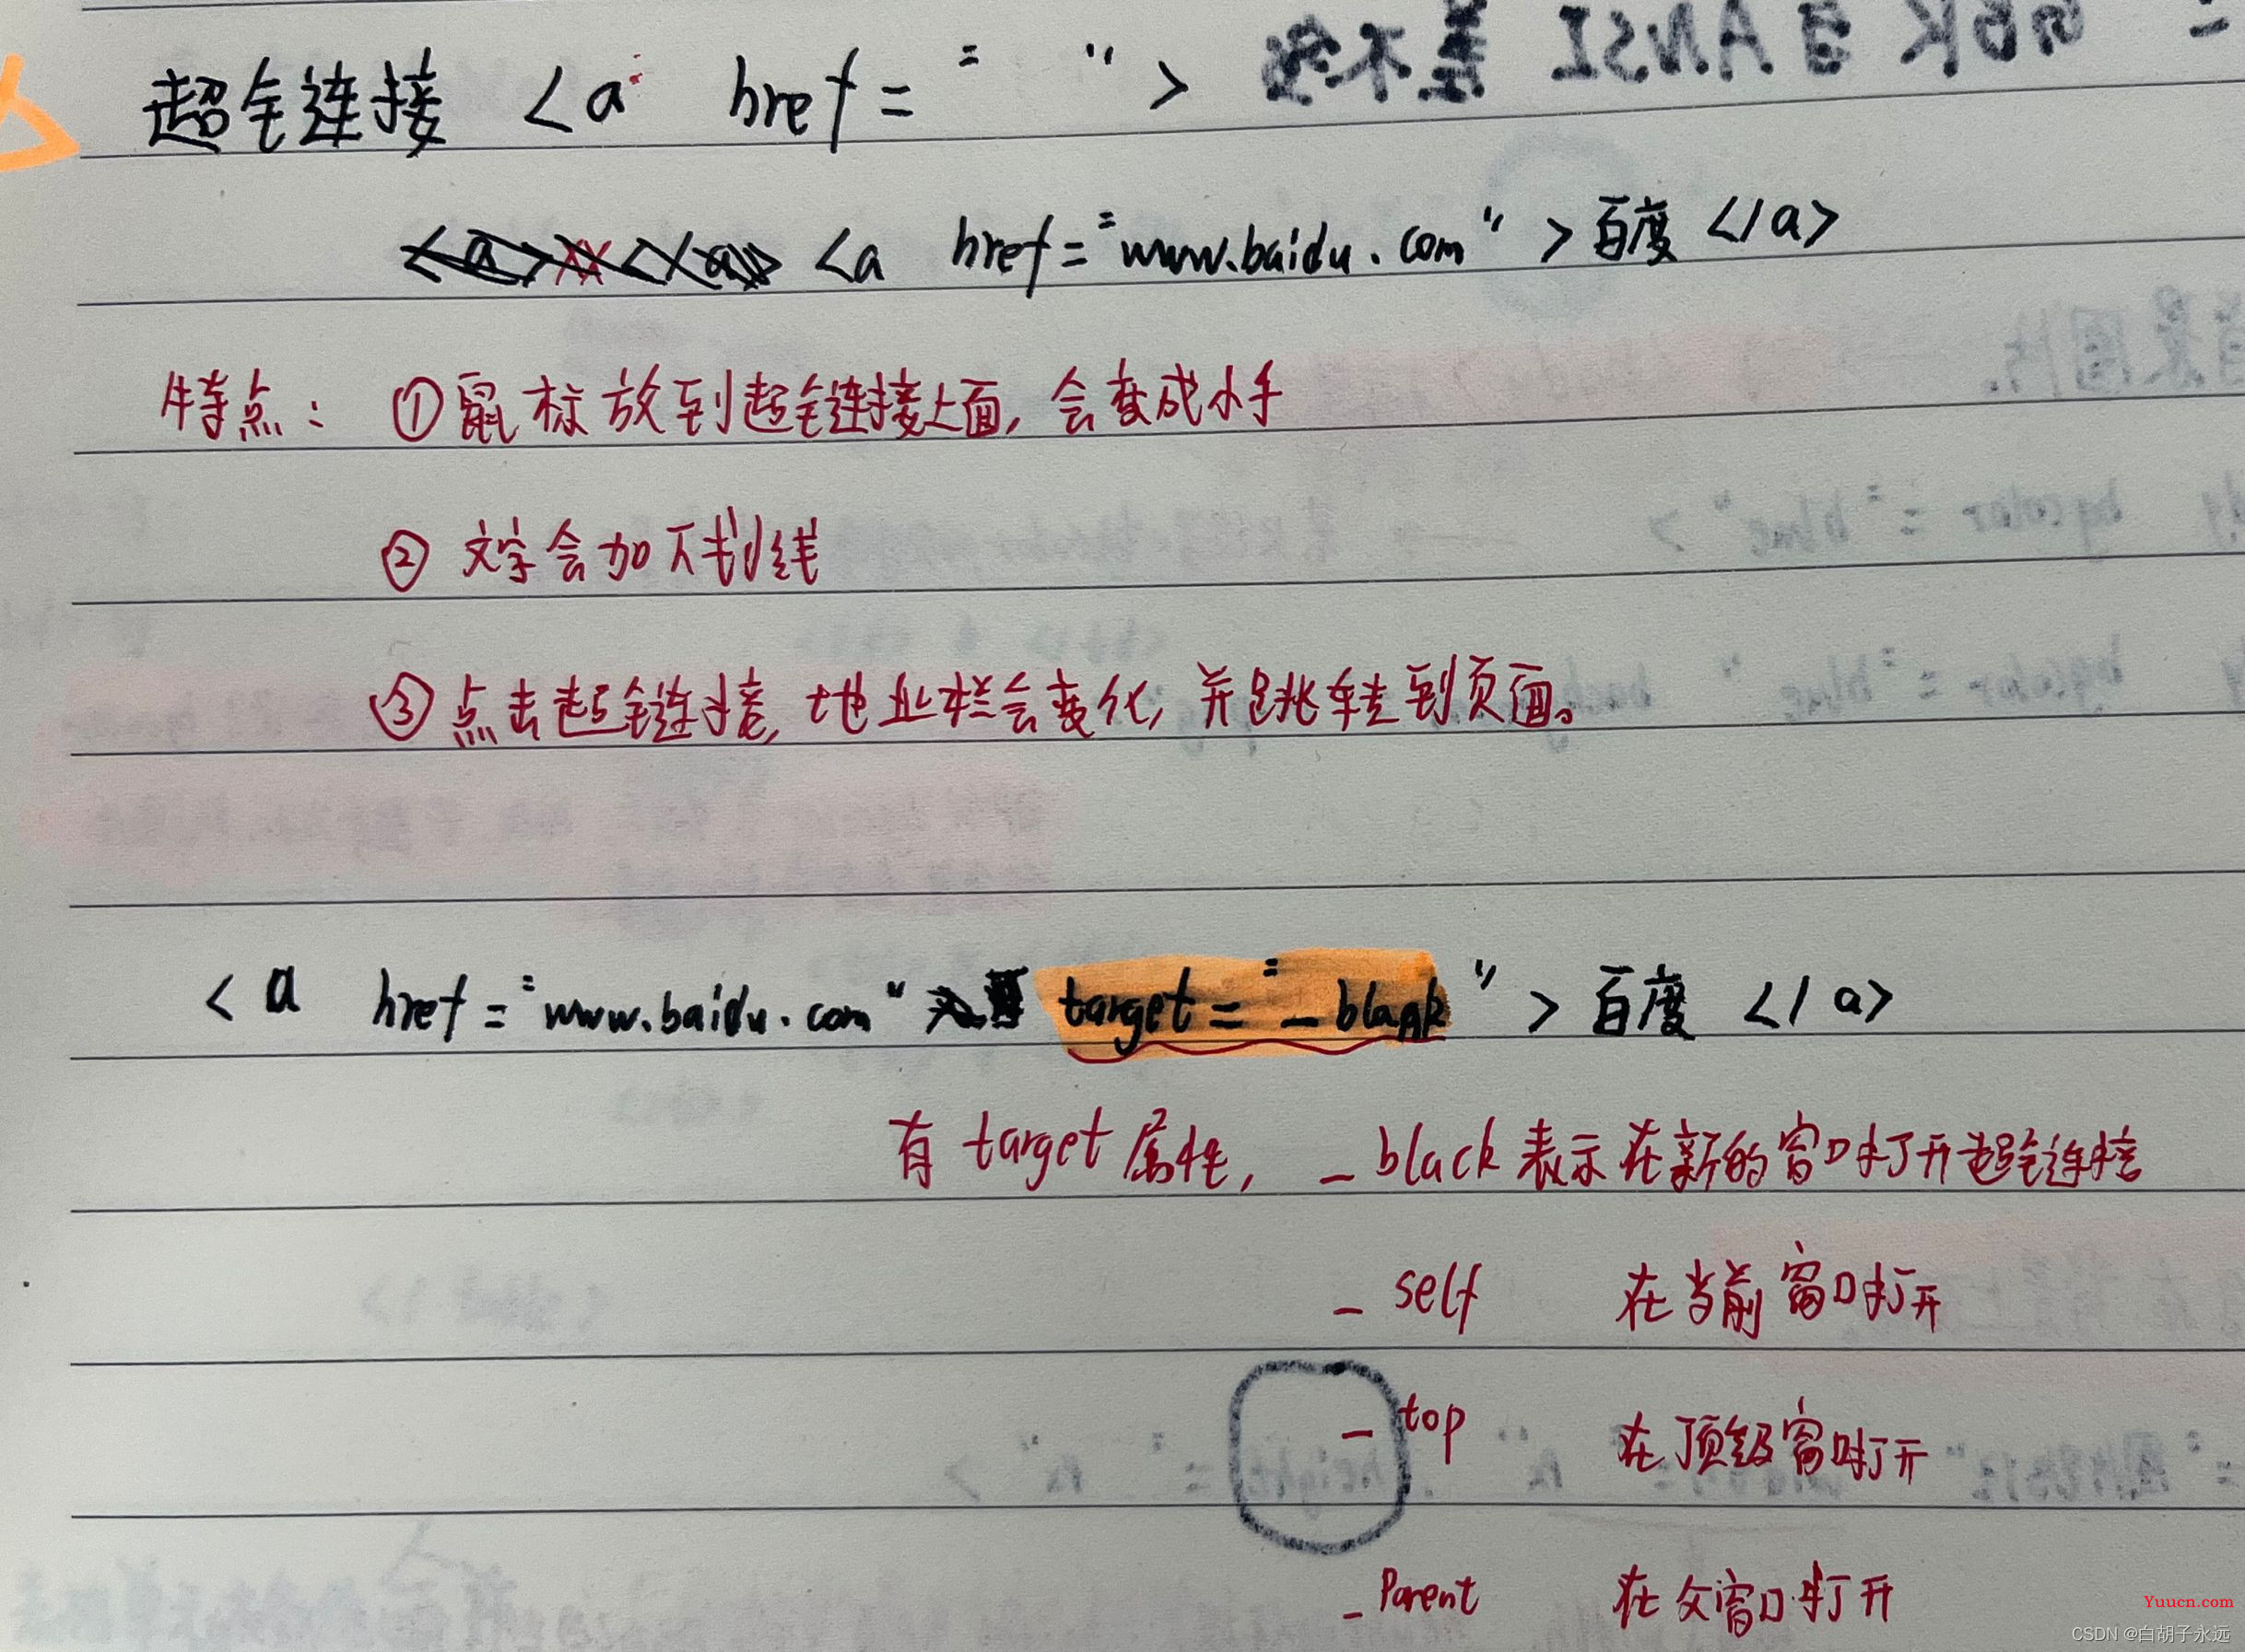 超链接 <a href=" ">
<a href="www.baidu.com">百度</a>
特点：①鼠标放到超链接上面，会变成小手
②文字会加下划线
③点击超链接，地址栏会变化，并跳转到页面。
<a href="www.baidu.com" target="_blank">百度</a>
有target属性，_black表示在新的窗口打开超链接
_self 在当前窗口打开
_top 在顶级窗口打开
_Parent 在父窗口打开
Yuucn.com
CSDN @白胡子永远